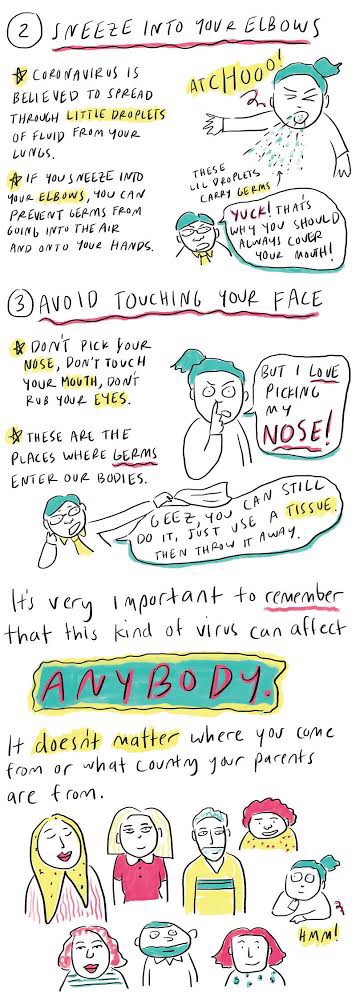 2 SNEEZE INTO YOUR ELBOWS
CORONAVIRUS IS
BELIEVED TO SPREAD
THROUGH LITTLE DROPLETS
OF FLUID FROM YOUR
LUNGS.
ATCHOOO!
THESE
LIL DROPLETS
CARRY GERMS
IF YOU SNEEZE INTO
YOUR ELBOWS, YOU CAN
PREVENT GERMS FROM
GOING INTO THE AIR
AND ONTO YOUR HANDS.
YUCK! THAT'S
WHY YOU SHOULD
ALWAYS COVER
YOUR MOUTH!
3 AVOID TOUCHING YOUR FACE
DON'T PICK YOUR
NOSE, DON'T TOUCH
YOUR MOUTH, DON'T
RUB YOUR EYES.
BUT I LOVE
PICKING
MY
NOSE!
THESE ARE THE
PLACES WHERE GERMS
ENTER OUR BODIES.
GEEZ, YOU CAN STILL
DO IT, JUST USE A TISSUE.
THEN THROW IT AWAY.
It's very important to remember
that this kind of virus can affect
ANYBODY.
It doesn't matter where you come
from or what country your parents
are from.
HMM!